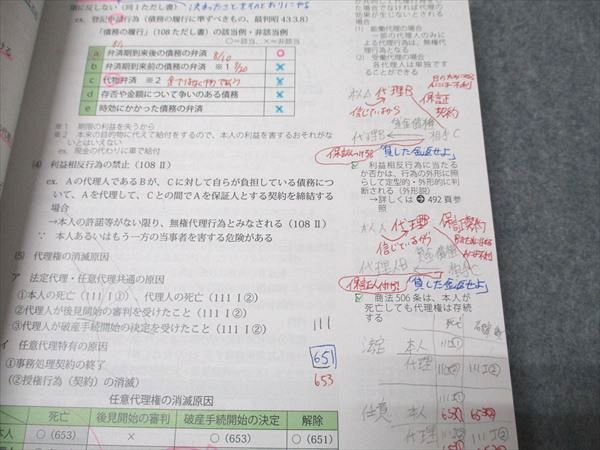 ex. 登記申請行為（債務の履行に準ずべきもの、最判昭 43.3.8）
「債務の履行」（108 ただし書）の該当例・非該当例
〇＝該当、×＝非該当
a 弁済期到来後の債務の弁済 〇
b 弁済期到来前の債務の弁済 ※1 ×
c 代物弁済 ※2 ×
d 存否や金額について争いのある債務 ×
e 時効にかかった債務の弁済 ×
※1 期限の利益を失うから
※2 本来の目的物に代えて給付をするので、本人の利益を害するおそれがな
いとはいえない
ex. 現金の代わりに車で給付
(4) 利益相反行為の禁止（108 Ⅱ）
ex. Aの代理人であるBが、Cに対して自らが負担している債務につ
いて、Aを代理して、Cとの間でAを保証人とする契約を締結する
場合
→本人の許諾等がない限り、無権代理行為とみなされる（108 Ⅱ）
∵ 本人あるいはもう一方の当事者を害する危険がある
(5) 代理権の消滅原因
ア 法定代理・任意代理共通の原因
①本人の死亡（111 Ⅰ①）、代理人の死亡（111 Ⅰ②）
②代理人が後見開始の審判を受けたこと（111 Ⅰ②）
③代理人が破産手続開始の決定を受けたこと（111 Ⅰ②） 111
イ 任意代理特有の原因
①事務処理契約の終了 651
（②授権行為（契約）の消滅） 653
任意代理権の消滅原因
死亡 後見開始の審判 破産手続開始の決定 解除
本人 〇（653） × 〇（653） 〇（651）
(1) 能働代理の場合
一部の代理人のみに
よる代理行為は、無権代
理行為となる
(2) 受働代理の場合
各代理人は単独です
ることができる
本人A 代理B
信じているから
保証
契約
代理B 貸金債権 相手C
保証人つける 「貸した金返せよ」
利益相反行為に当た
るか否かは、行為の外形に照
らして定型的・外形的に判
断される（外形説）
→詳しくは 492 頁参
照
本人A 代理B 保証契約
信じているから
代理人B 貸金債権 相手C
保証人付け 「貸した金返せよ」
商法 506 条は、本人が
死亡しても代理権は存続
する
死亡
法定 本人 111Ⅰ①
代理 111Ⅰ② 111Ⅰ②
任意 本人 653① 653②
代理 111Ⅰ② 111Ⅰ②